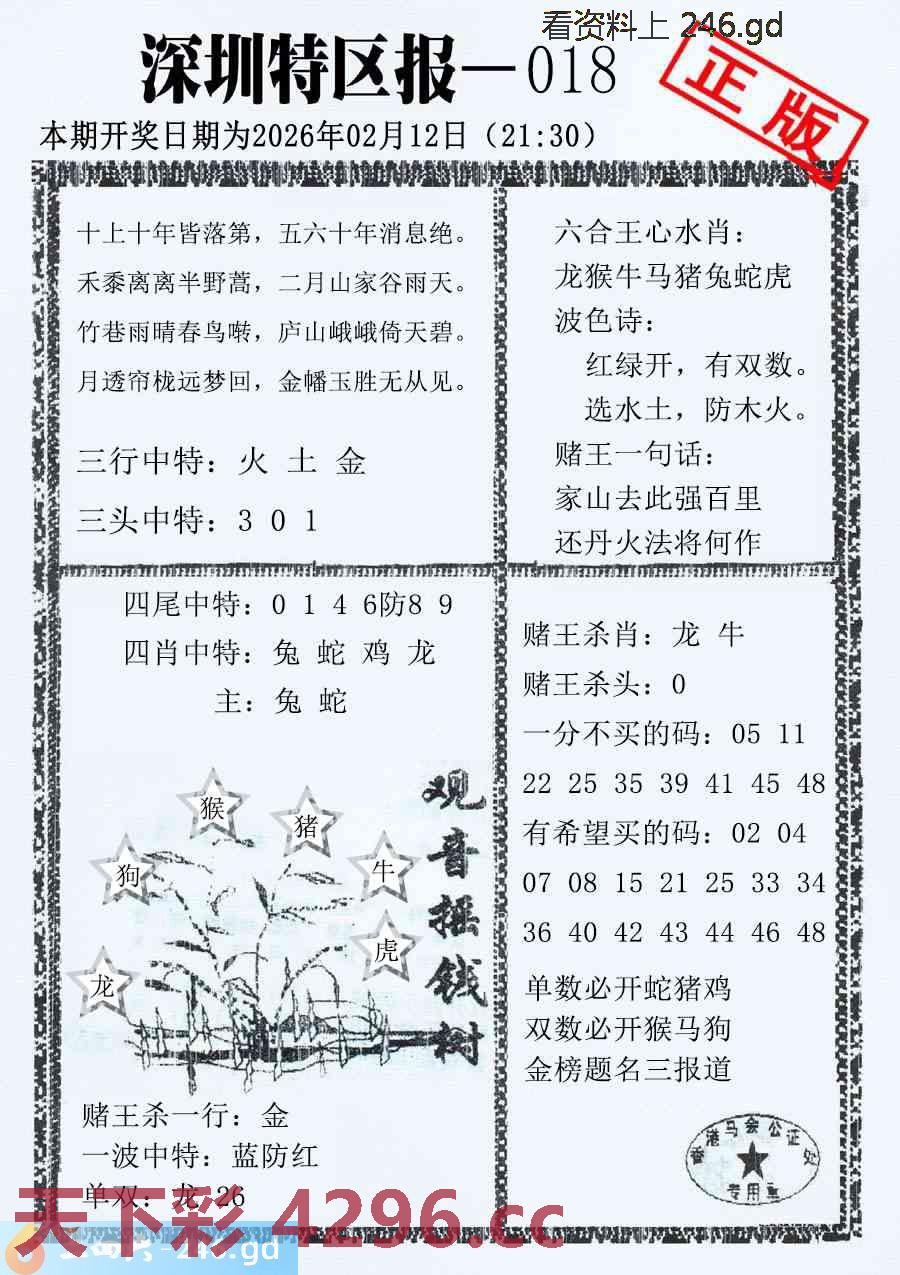 看资料上 246.gd
深圳特区报—018
正版
本期开奖日期为2026年02月12日（21:30）
十上十年皆落第，五六十年消息绝。
禾黍离离半野蒿，二月山家谷雨天。
竹巷雨晴春鸟啭，庐山峨峨倚天碧。
月透帘栊远梦回，金幡玉胜无从见。
三行中特：火 土 金
三头中特：3 0 1
六合王心水肖：
龙猴牛马猪兔蛇虎
波色诗：
红绿开，有双数。
选水土，防木火。
赌王一句话：
家山去此强百里
还丹火法将何作
四尾中特：0 1 4 6防8 9
四肖中特：兔 蛇 鸡 龙
主：兔 蛇
观音摇钱树
猴
猪
狗
牛
虎
龙
赌王杀一行：金
一波中特：蓝防红
单双：龙 26
赌王杀肖：龙 牛
赌王杀头：0
一分不买的码：05 11
22 25 35 39 41 45 48
有希望买的码：02 04
07 08 15 21 25 33 34
36 40 42 43 44 46 48
单数必开蛇猪鸡
双数必开猴马狗
金榜题名三报道
香港马会公证处
专用章
天下彩 4296.cc
246.gd